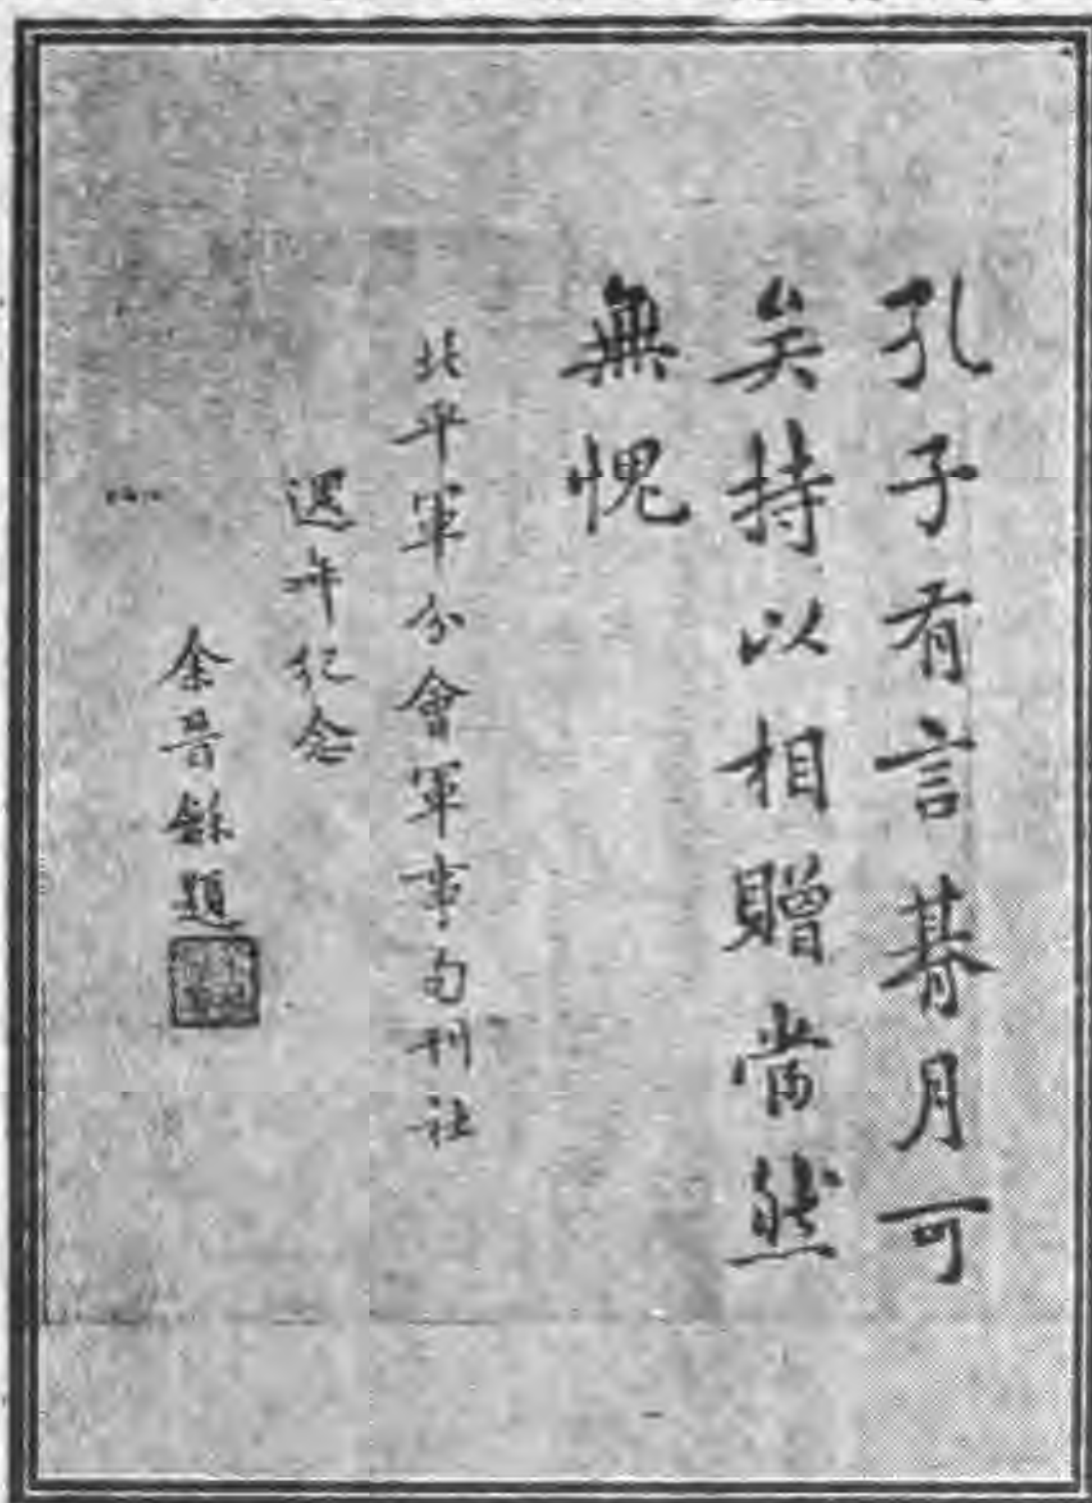 孔子有言朞月可
矣持以相贈當然
無愧
北平軍分會軍事旬刊社
週年紀念
余晉龢題